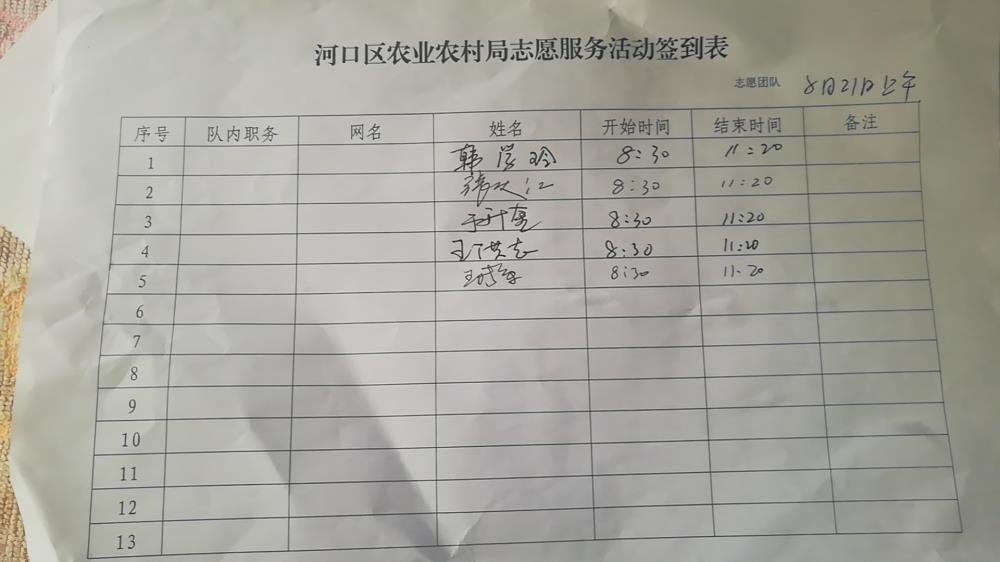 河口区农业农村局志愿服务活动签到表
志愿团队 8月21日上午
序号 队内职务 网名 姓名 开始时间 结束时间 备注
1 韩学玲 8:30 11:20
2 8:30 11:20
3 8:30 11:20
4 王洪志 8:30 11:20
5 8:30 11:20
6
7
8
9
10
11
12
13